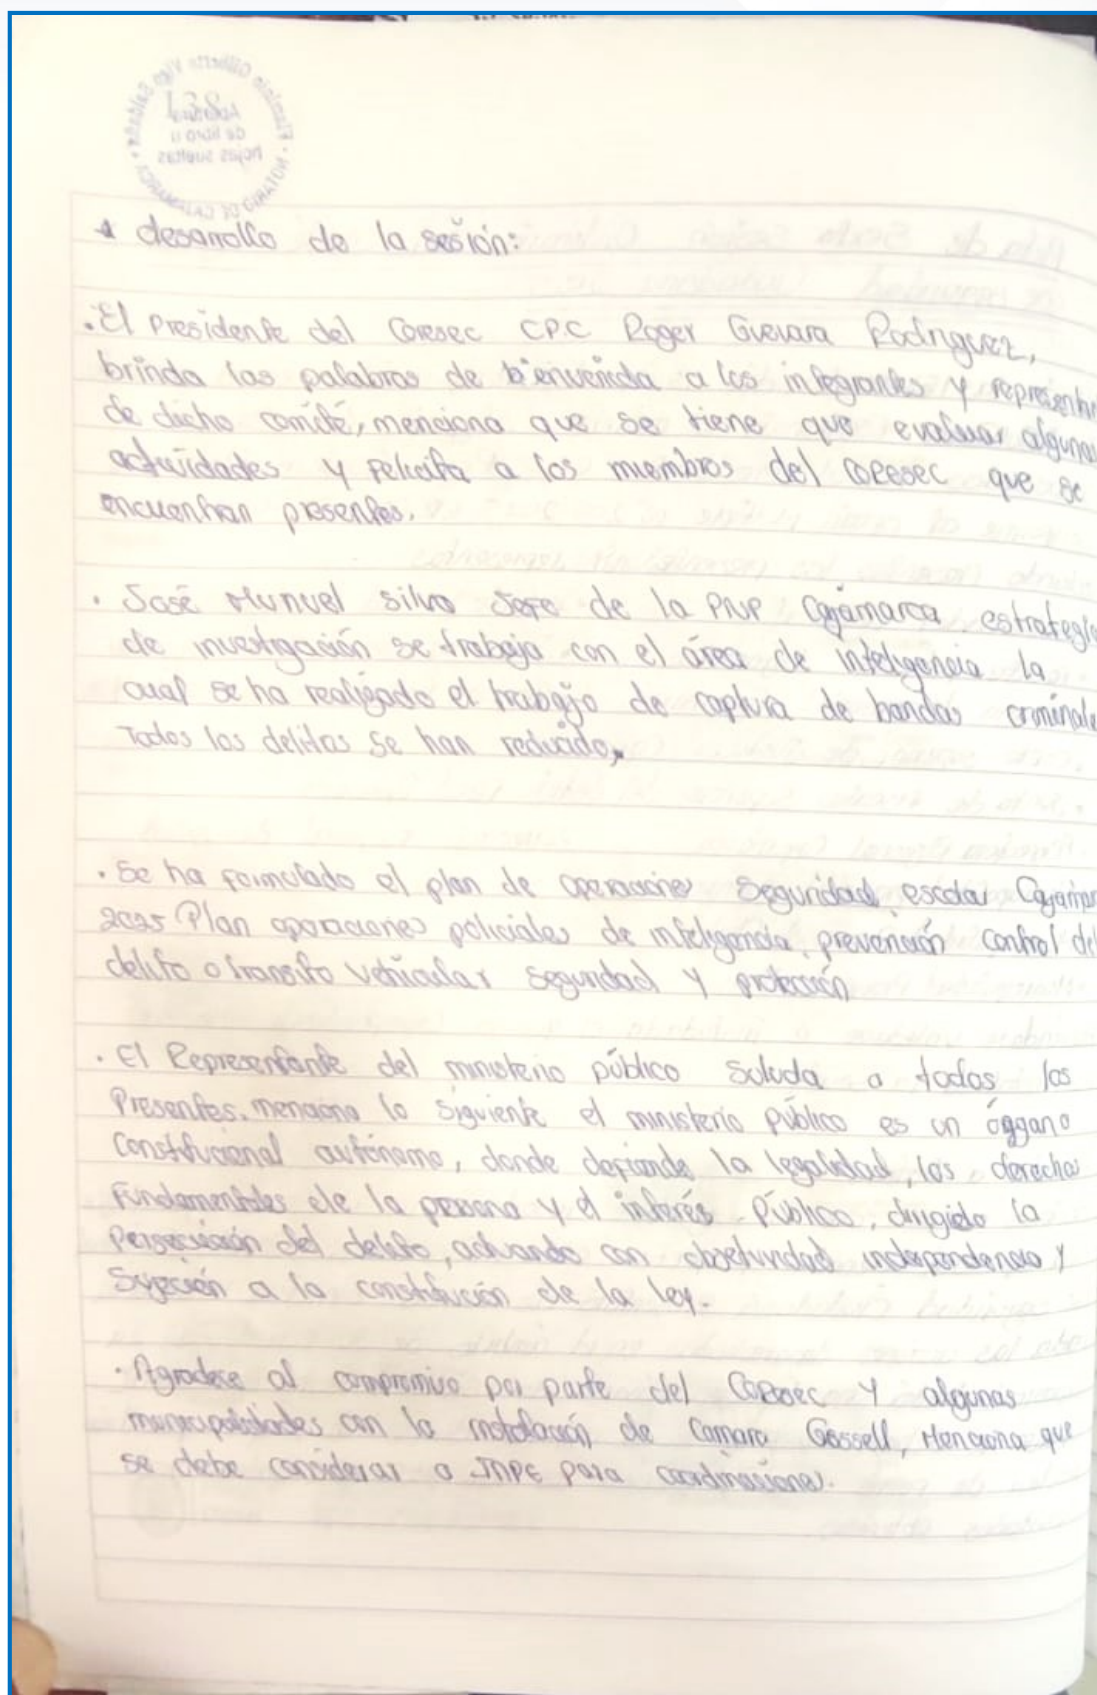 desarrollo de la sesión:
. El Presidente del Coresec CPC Roger Guevara Rodriguez,
brinda las palabras de bienvenida a los integrantes y represent
de dicho comité, menciona que se tiene que evaluar algunas
actividades y felicita a los miembros del Coresec que se
encuentran presentes.
. José Manuel silva Jefe de la PNP Cajamarca estrategia
de investigación se trabaja con el área de inteligencia la
cual se ha realizado el trabajo de captura de bandas criminale
Todos los delitos se han reducido,
. Se ha formulado el plan de operaciones Seguridad escolar Cajamar
2025 Plan operaciones policiales de inteligencia prevención control del
delito o transito vehicular seguridad y protección
. El Representante del ministerio público Saluda a todos los
Presentes. menciona lo siguiente el ministerio público es un óggano
Constitucional autónomo, donde defiende la legalidad, los derechos
Fundamentales de la persona y el interés Público, dirigido la
Persecución del delito, actuando con objetividad independencia y
Sujeción a la constitución de la ley.
. Agradece al compromiso por parte del Coresec y algunas
municipalidades con la instalación de Camara Gessell, Menciona que
se debe considerar a INPE para coordinaciones.